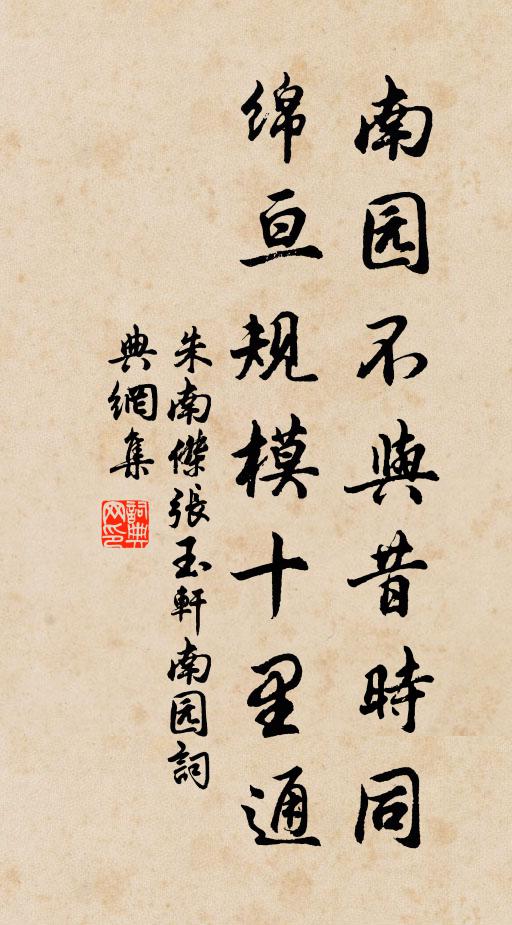 南园不與昔時同
绵亘规模十里通
朱南傑張玉軒南园詞
典網集
詞典网印